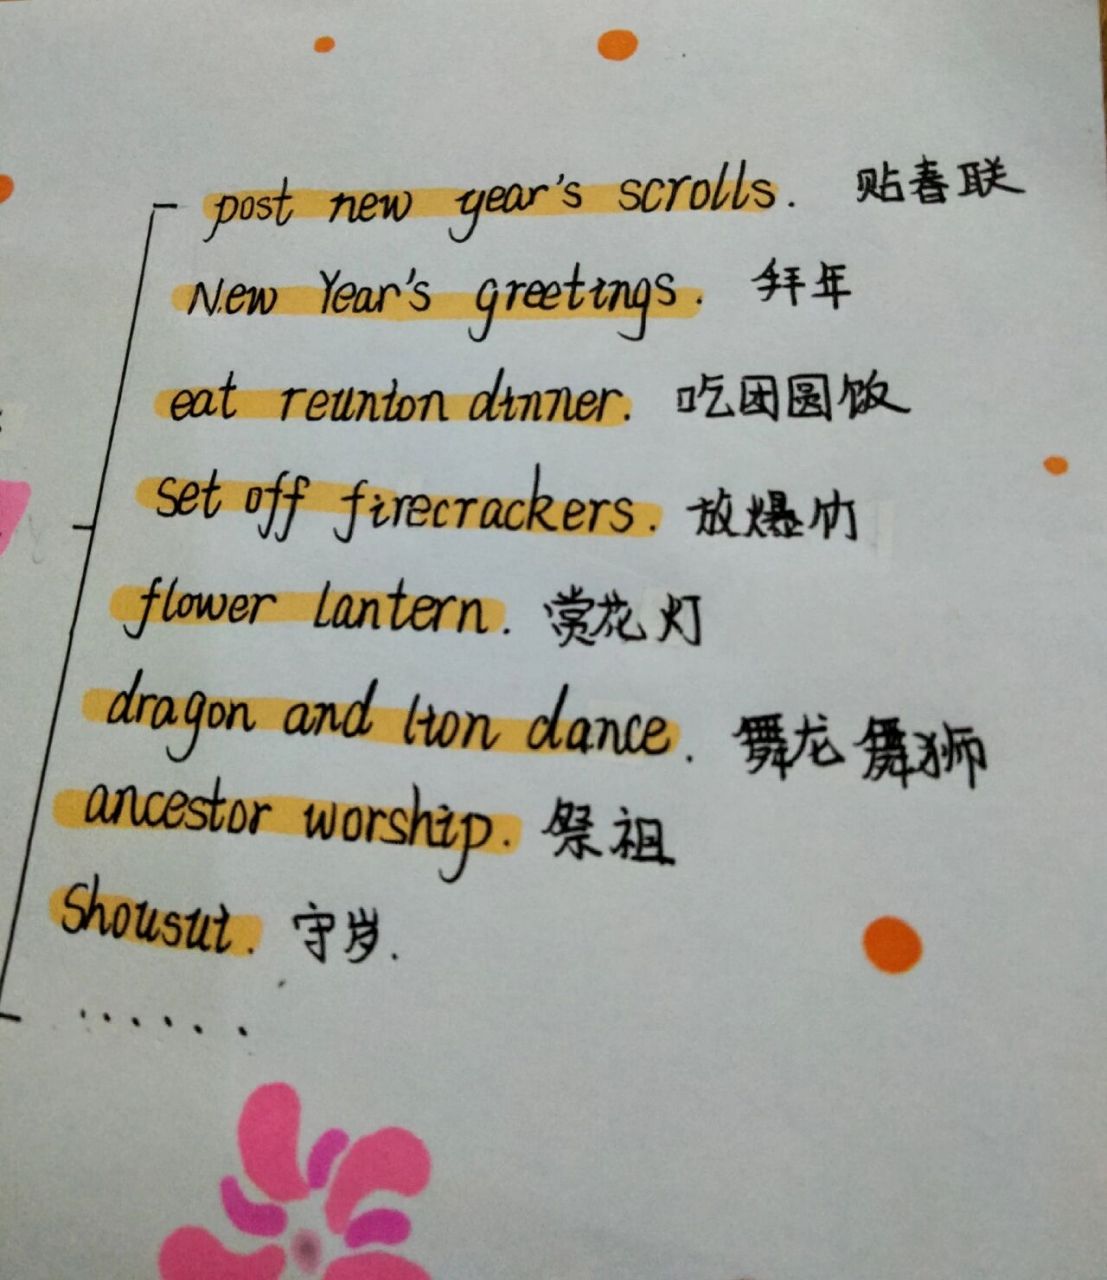 post new year's scrolls. 贴春联
New Year's greetings. 拜年
eat reunion dinner. 吃团圆饭
set off firecrackers. 放爆竹
flower lantern. 赏花灯
dragon and lion dance. 舞龙舞狮
ancestor worship. 祭祖
Shousui. 守岁.
......